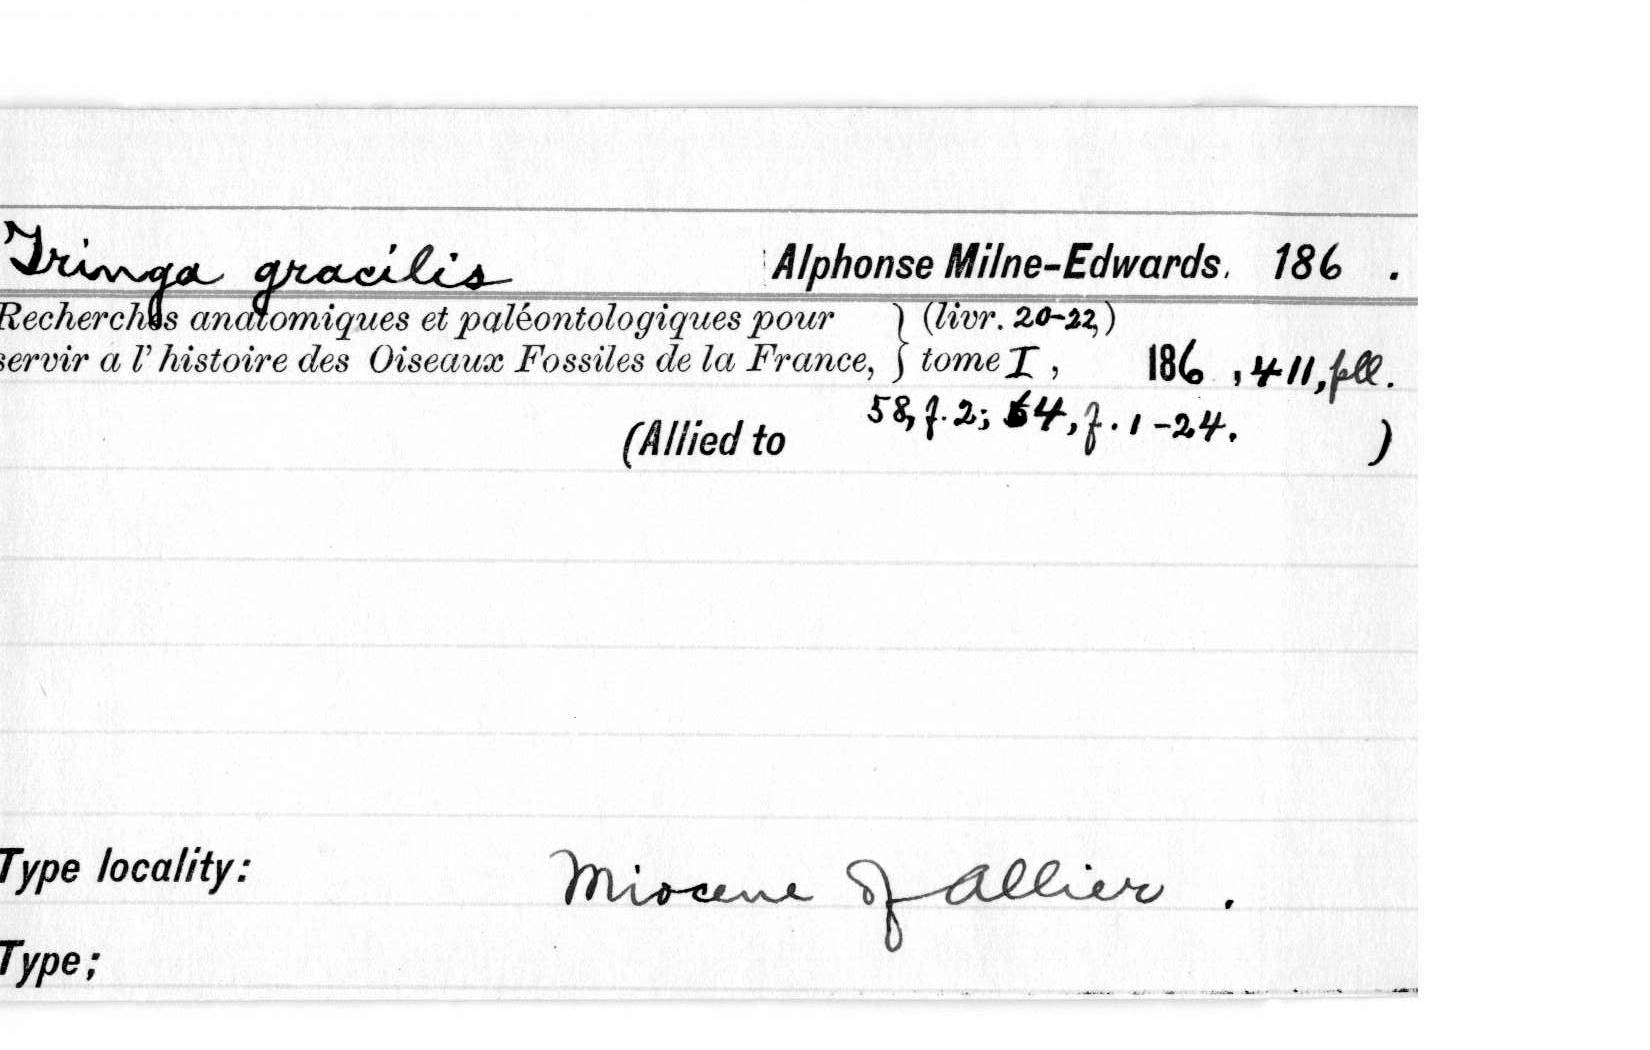 Tringa gracilis Alphonse Milne-Edwards. 186 .
Recherches anatomiques et paléontologiques pour } (livr. 20-22,)
servir a l'histoire des Oiseaux Fossiles de la France, } tome I, 186 , 411, pll.
58, f. 2; 64, f. 1-24.
(Allied to )
Type locality: Miocene of Allier .
Type;